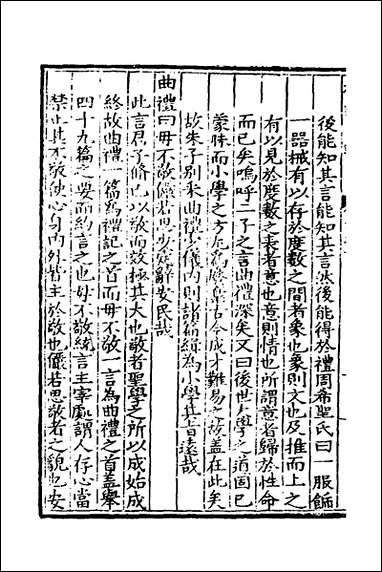 後能知其言能知其言然後能得於禮周希聖氏曰一服飾
一器械有以存於度數之間者象也象則文也及推而上之
有以見於度數之表者意也意則情也所謂意者歸於性命
而已矣嗚呼二子之言曲禮深矣又曰後世大學之道固已
蒙昧而小學之方尤為廢棄古今成才難易之故蓋在此矣
故朱子别采曲禮少儀内則諸篇緝為小學其旨遠哉
曲禮曰毋不敬儼若思安定辭安民哉
此言君子修己以敬而效極其大也敬者聖學之所以成始成
終故曲禮一篇為禮記之首而毋不敬一言為曲禮之首蓋舉
四十九篇之要而約言之也毋不敬統言主宰處謂人存心當
禁止其不敬使心身内外皆主於敬也儼若思敬者之貌也安